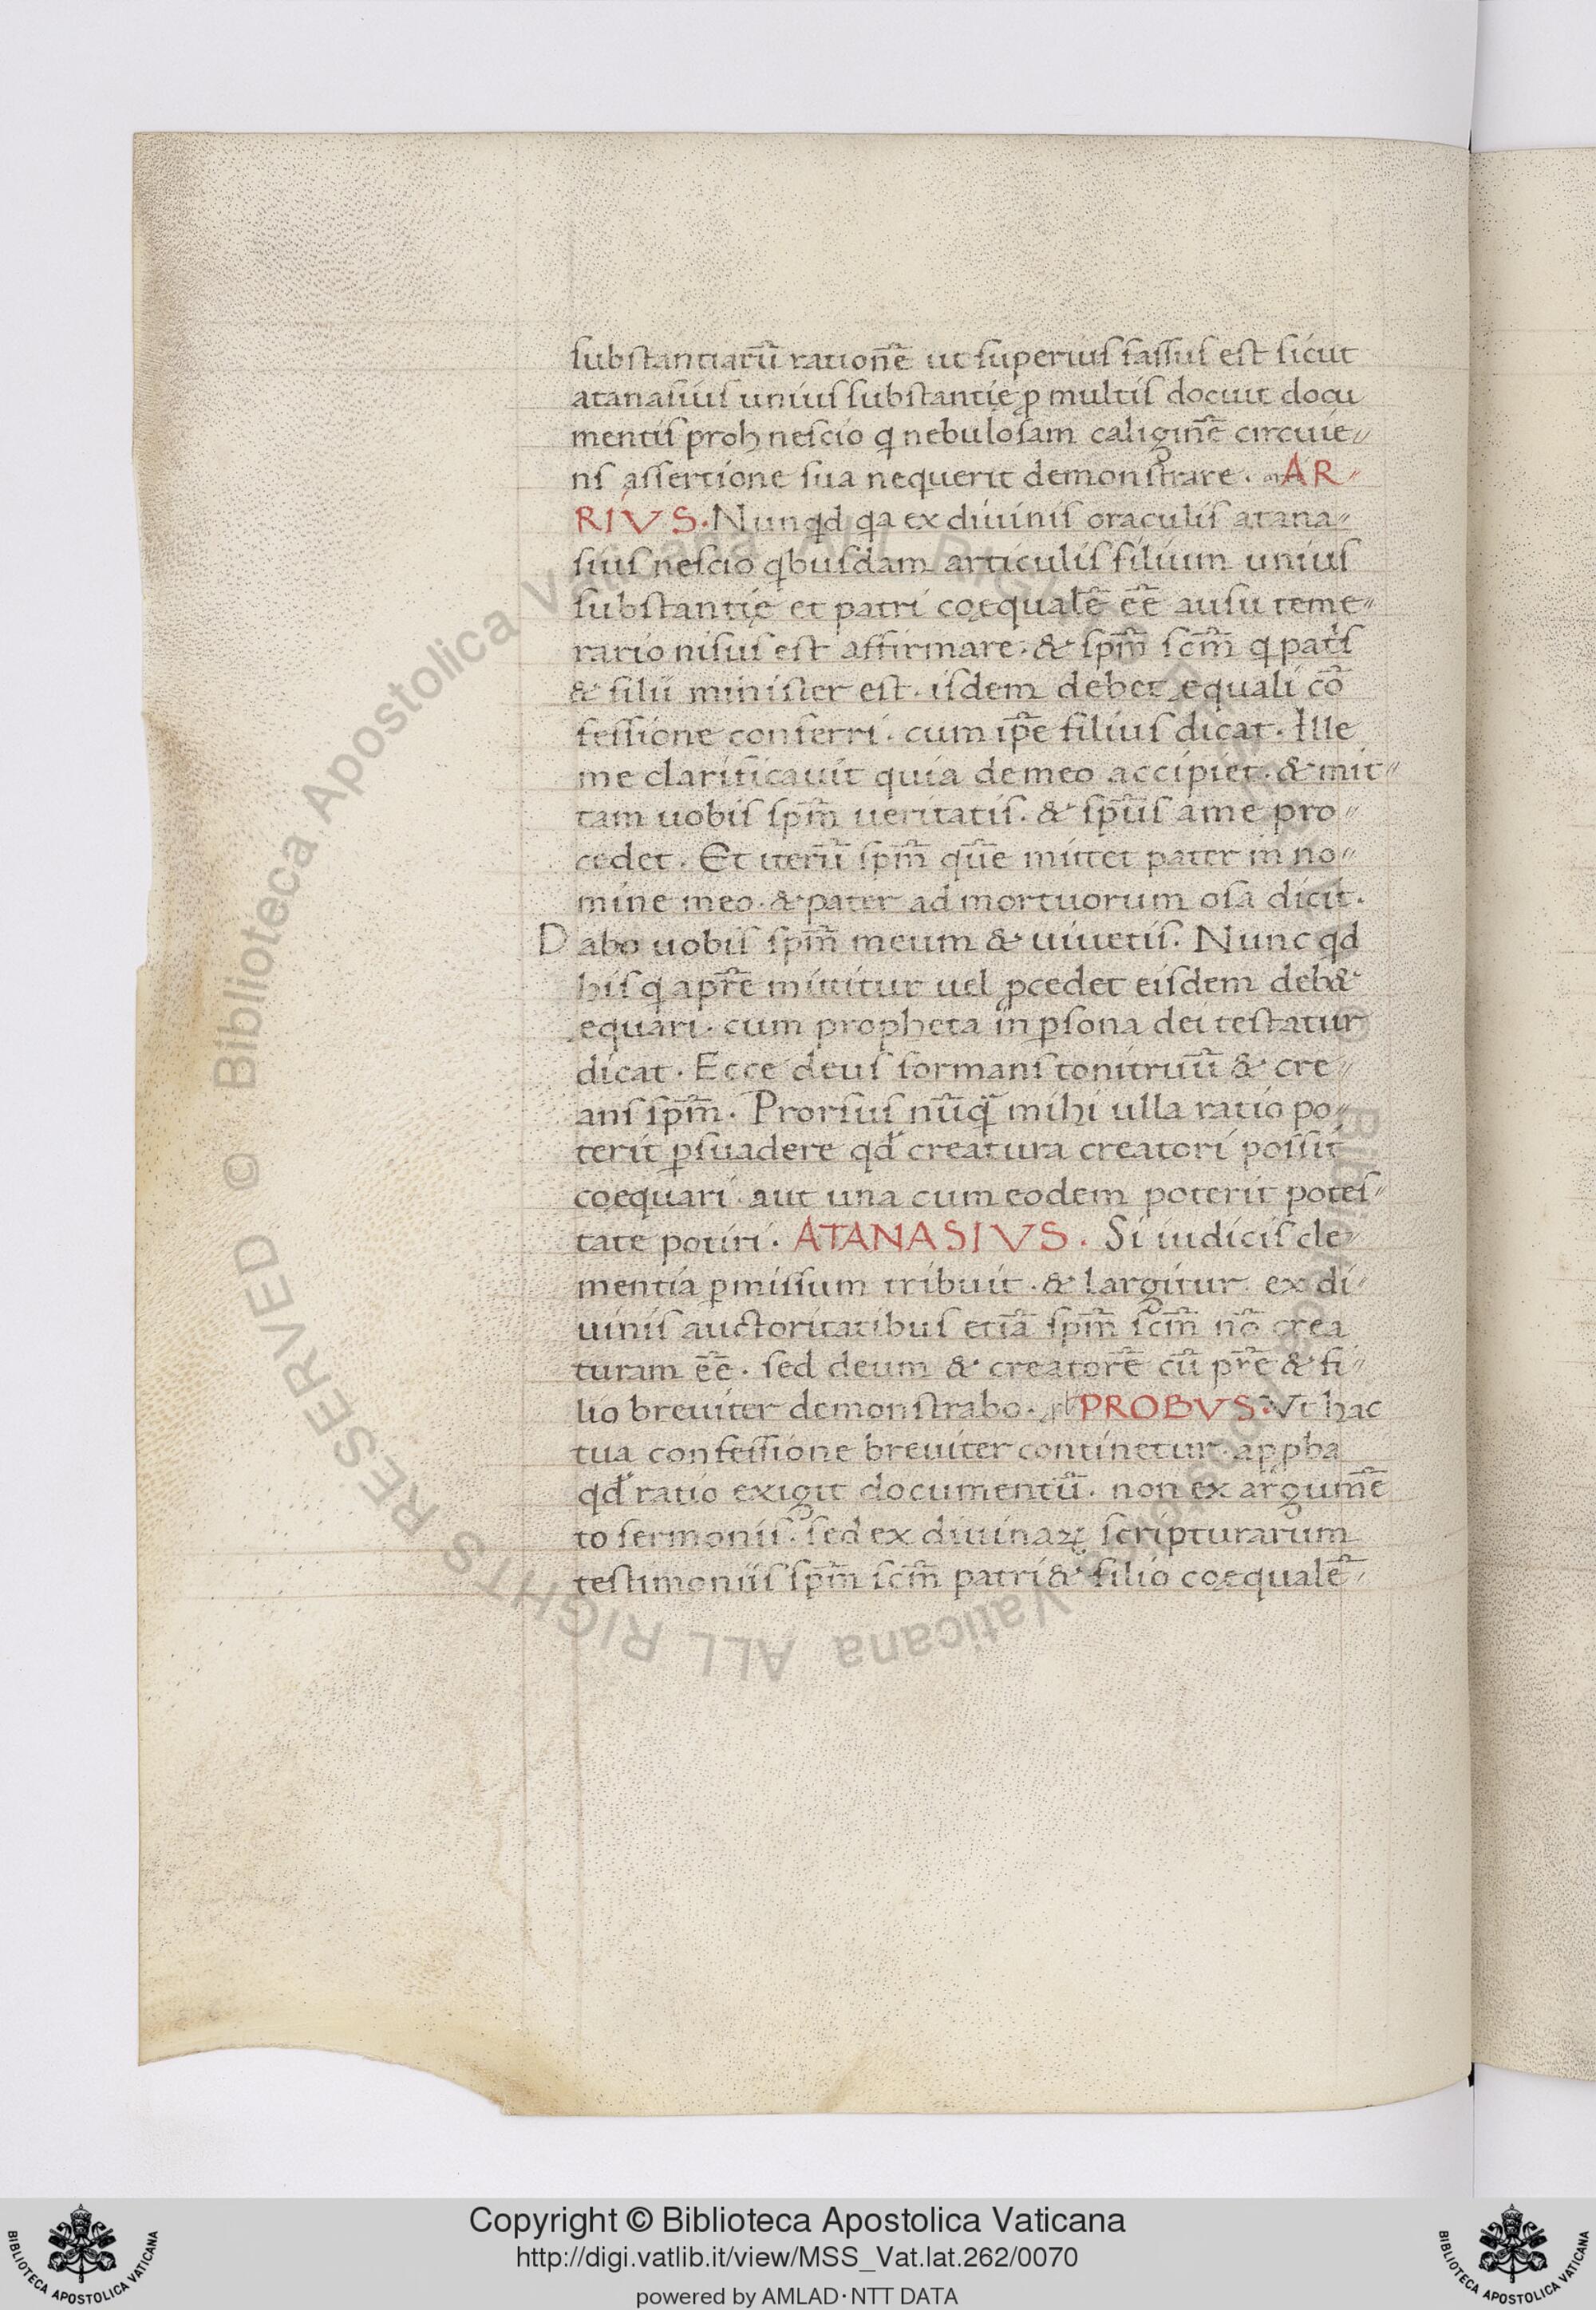 substantiarū rationē ut superius fassus est sicut
atanasius unius substantię ꝓ multis docuit docu
mentis proh nescio q nebulosam caliginē circuie〃
ns assertione sua nequerit demonstrare · AR〃
RIVS. Nunqd qa ex diuinis oraculis atana〃
sius nescio qbusdam articulis filium unius
substantię et patri coęqualē eē ausu teme〃
rario nisus est affirmare · & spm̄ scm̄ q patris
& filii minister est · isdem debet ęquali cō
fessione conferri · cum ip̄e filius dicat · Ille
me clarificauit quia de meo accipiet · & mit〃
tam uobis spm̄ ueritatis · & sp̄us a me pro〃
cedet · Et iterū spm̄ quē mittet pater in no〃
mine meo · & pater ad mortuorum osa dicit ·
Dabo uobis spm̄ meum & uiuetis · Nunc qd
his q a pr̄e mittitur uel ꝓcedet eisdem deb&
ęquari · cum propheta in ꝑsona dei testatur
dicat · Ecce deus formans tonitruū & cre〃
ans spm̄ · Prorsus nūq mihi ulla ratio po〃
terit ꝑsuadere qd creatura creatori possit
coequari · aut una cum eodem poterit potes〃
tate potiri · ATANASIVS . Si iudicis cle〃
mentia ꝑmissum tribuit · & largitur ex di〃
uinis auctoritatibus etiā spm̄ scm̄ nō crea
turam eē · sed deum & creatorē cū pr̄e & fi〃
lio breuiter demonstrabo · PROBVS. Vt hac
tua confessione breuiter continetur · apꝓba
qd ratio exigit documentū · non ex argumē
to sermonis · sed ex diuinaꝝ scripturarum
testimoniis spm̄ scm̄ patri & filio coęqualē〃
© Biblioteca Apostolica Vaticana ALL RIGHTS RESERVED
Copyright © Biblioteca Apostolica Vaticana
http://digi.vatlib.it/view/MSS_Vat.lat.262/0070
powered by AMLAD·NTT DATA
BIBLIOTECA APOSTOLICA VATICANA
BIBLIOTECA APOSTOLICA VATICANA